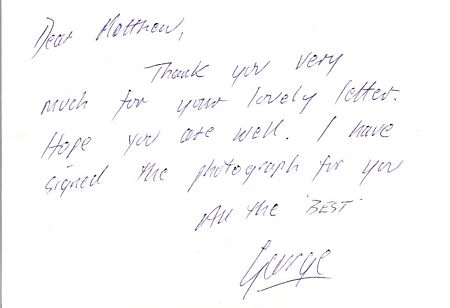 Dear Matthew,
Thank you very
much for your lovely letter.
Hope you are well. I have
signed the photograph for you
All the 'BEST'
George